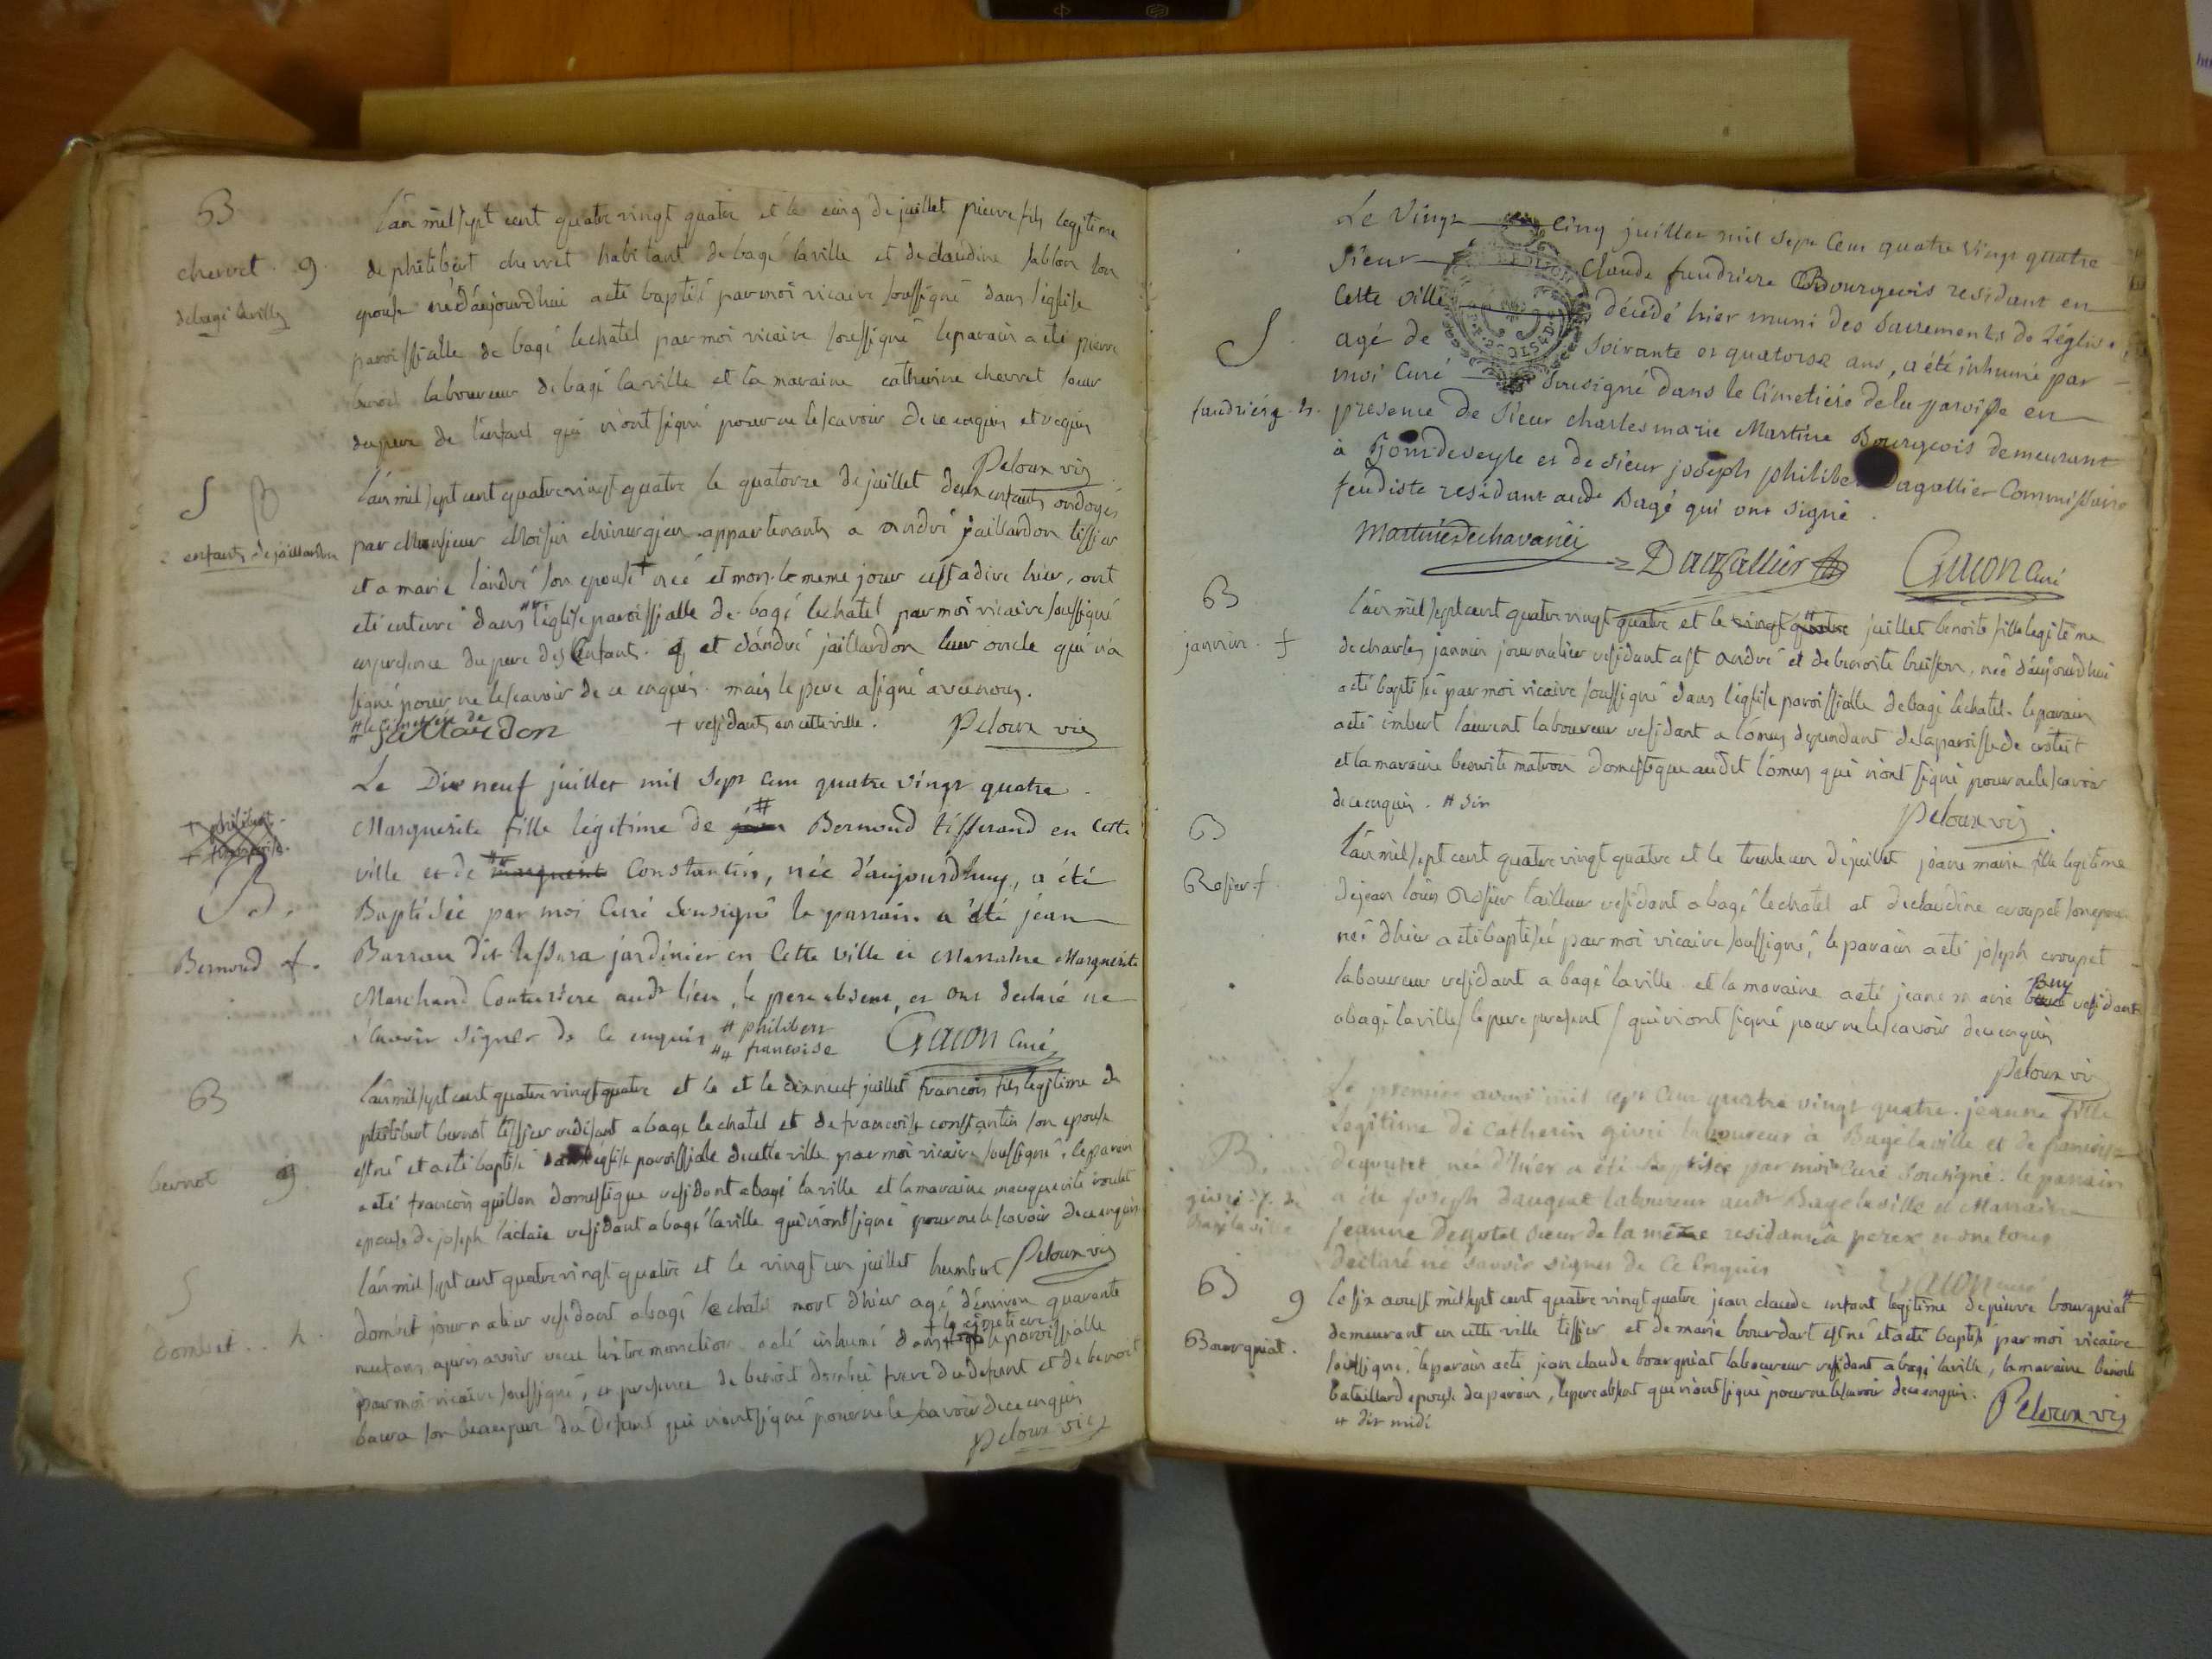 B
chervet . g.
de bagé la ville
l'an mil sept cent quatre vingt quatre et le cinq de juillet pierre fils legitime
de philibert chervet habitant de bagé la ville et de claudine sablon son
epouse né d'aujourdhui a eté baptisé par moi vicaire soussigné dans l'église
paroissialle de bagé le chatel par moi vicaire soussigné le parain a eté pierre
benoit laboureur de bagé la ville et la maraine catherine chervet soeur
du pere de l'enfant qui n'ont signé pour ne le scavoir de ce enquis et requis
Peloux vic
S
2 enfants de jaillardon
l'an mil sept cent quatre vingt quatre le quatorze de juillet deux enfants ondoyés
par Monsieur Moisin chirurgien appartenants a andré jaillardon tissier
et a marie landré son epouse + née et mors le meme jour cest a dire hier, ont
eté enterré dans ## l'église paroissialle de bagé le chatel par moi vicaire soussigné
en presence du pere des Enfants. et d'andré jaillardon leur oncle qui n'a
signé pour ne le scavoir de ce enquis. mais le pere a signé avec nous.
## le cimetiere de
Jaillardon + residants en cette ville. Peloux vic
+ philibert.
+ francoise.
B.
Bernond f.
Le Dix neuf juillet mil sept cent quatre vingt quatre
Marguerite fille légitime de jean # Bernond tisserand en cette
ville et de marguerite ## Constantin, née d'aujourdhuy, a été
Baptisée par moi Curé Sousigné le parrain a été jean
Barrau dit jardinier en Cette ville et Marraine Marguerite
Marchand Couturiere audt lieu, le pere absent, et ont declaré ne
scavoir signer de ce enquis # philibert
## francoise Gacon Curé
B
bernot g
l'an mil sept cent quatre vingt quatre et le et le dix neuf juillet francois fils legitime de
philibert bernot tissier residant a bagé le chatel et de francoise constantin son epouse
est né et a eté baptisé dans l'église paroissiale de cette ville par moi vicaire soussigné, le parain
a eté francois guillon domestique residant a bagé la ville et la maraine marguerite
epouse de joseph laclaie residant a bagé la ville qui n'ont signé pour ne le scavoir de ce enquis
Peloux vic
S
dombet . . h.
l'an mil sept cent quatre vingt quatre et le vingt un juillet humbert
dombet journalier residant a bagé le chatel mort d'hier agé d'environ quarante
neuf ans apres avoir recu l'extremonction a eté inhumé dans + le cimetiere paroissialle
par moi vicaire soussigné, en presence de benoit dombet frere du defunt et de benoit
son beau pere du Defunt qui n'ont signé pour ne le scavoir de ce enquis
Peloux vic
S
fundriere h.
Le Vingt cinq juillet mil sept Cent quatre vingt quatre
Sieur Claude fundriere Bourgeois residant en
Cette ville décédé hier muni des Sacrements de l'église,
agé de Soixante et quatorse ans, a été inhumé par
moi Curé Sousigné dans le Cimetiére de la paroisse en
presence de Sieur Charles marie Martine Bourgeois demeurant
à Pontdeveyle et de Sieur joseph philibe Dagallier Commissaire
feudiste residant audt Bagé qui ont signé.
Martine Dechavanes Dagallier Gacon Curé
B
jannin . f
l'an mil sept cent quatre vingt quatre et le vingt quatre juillet benoite fille legitime
de charles jannin journalier residant a st andré et de benoite buisson, née d'aujourdhui
a eté baptisée par moi vicaire soussigné dans l'église paroissialle de bagé le chatel. le parain
a eté imbert laurent laboureur residant a lomus dependant de la paroisse de crotet
et la maraine benoite matron domestique audit lomus qui n'ont signé pour ne le scavoir
de ce enquis. #
Peloux vic
B
Rosier f.
l'an mil sept cent quatre vingt quatre et le trente un de juillet jeane marie fille legitime
de jean louis Rosier tailleur residant a bagé le chatel et de claudine croupet son epouse
née d'hier a eté baptisée par moi vicaire soussigné, le parain a eté joseph croupet
laboureur residant a bagé la ville. et la maraine a eté jeane marie Buy residante
a bagé la ville / le pere present / qui n'ont signé pour ne le scavoir de ce enquis
Peloux vic
B.
givri f. de
Bagé la ville
Le premier aoust mil sept Cent quatre vingt quatre. jeanne fille
Legitime de Catherin givri laboureur à Bagé la ville et de francoise
degoutet née d'hier a été Baptisée par moi Curé Sousigné. le parrain
a été joseph dauguet laboureur audt Bagé la ville et Marraine
jeanne Degotet Soeur de la mére residante à perex et ont tous
declaré ne savoir signer de Ce Enquis
Gacon curé
B
g
Bourgniat.
le six aoust mil sept cent quatre vingt quatre jean claude enfant legitime de pierre bourgniat #
demeurant en cette ville tissier et de marie bourdart est né et a eté baptisé par moi vicaire
soussigné, le parain a eté jean claude bourgniat laboureur residant a bagé la ville, la maraine benoite
bataillard epouse du parain, le pere absent qui n'ont signé pour ne le scavoir de ce enquis.
# dit midi
Peloux vic